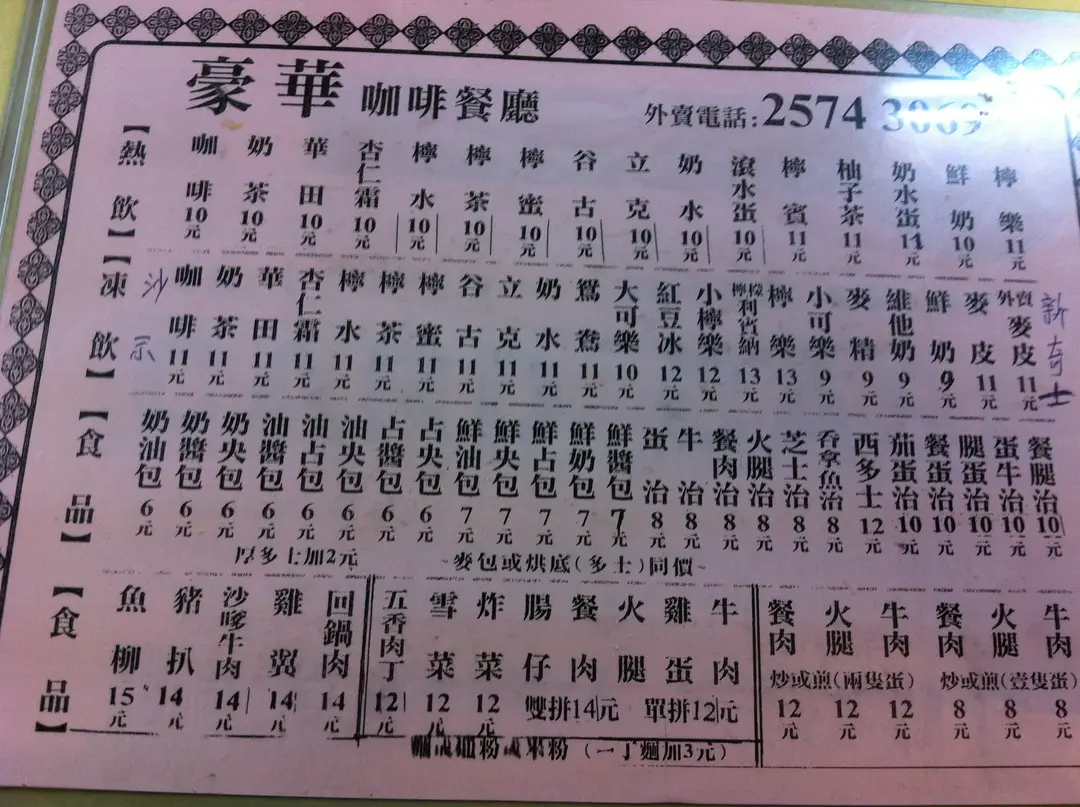 豪華 咖啡餐廳 外賣電話:2574 3069
【熱飲】
咖啡 10元
奶茶 10元
華田 10元
杏仁霜 10元
檸水 10元
檸茶 10元
檸蜜 10元
谷古 10元
立克 10元
奶水 10元
滾水蛋 10元
檸賓 11元
柚子茶 11元
奶水蛋 11元
鮮奶 10元
檸樂 11元
【凍飲】
咖啡 11元
奶茶 11元
華田 11元
杏仁霜 11元
檸水 11元
檸茶 11元
檸蜜 11元
谷古 11元
立克 11元
奶水 11元
鴛鴦 11元
大可樂 10元
紅豆冰 12元
小檸樂 12元
檸檬利賓納 13元
檸樂 13元
小可樂 9元
麥精 9元
維他奶 9元
鮮奶 9元
麥皮 11元
外賣麥皮 11元
新奇士
【食品】
奶油包 6元
奶醬包 6元
奶央包 6元
油醬包 6元
油占包 6元
油央包 6元
占醬包 6元
占央包 6元
鮮油包 7元
鮮央包 7元
鮮占包 7元
鮮奶包 7元
鮮醬包 7元
蛋治 8元
牛治 8元
餐肉治 8元
火腿治 8元
芝士治 8元
吞拿魚治 8元
西多士 12元
茄蛋治 10元
餐蛋治 10元
腿蛋治 10元
蛋牛治 10元
餐腿治 10元
厚多士加2元
~麥包或烘底(多士)同價~
【食品】
魚柳 15元
豬扒 14元
沙嗲牛肉 14元
雞翼 14元
回鍋肉 14元
五香肉丁 12元
雪菜 12元
炸菜 12元
腸仔
餐肉
火腿
雞蛋
牛肉
雙拼14元 單拼12元
粉或米粉 (一丁麵加3元)
餐肉 12元
火腿 12元
牛肉 12元
炒或煎(兩隻蛋)
餐肉 8元
火腿 8元
牛肉 8元
炒或煎(壹隻蛋)